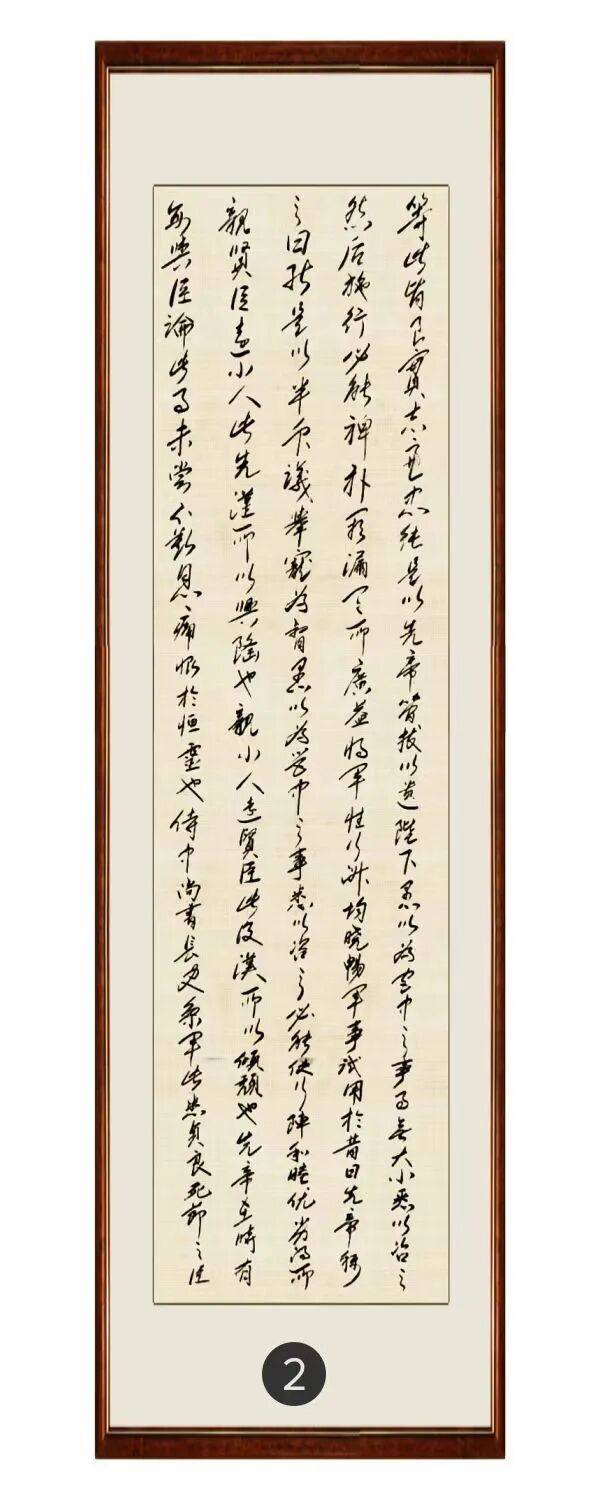 等此皆良實志慮忠純是以先帝簡拔以遺陛下愚以為宮中之事事無大小悉以咨之
然后施行必能裨补闕漏有所廣益将軍性行淑均曉暢軍事試用於昔日先帝稱
之曰能是以議舉寵為督愚以為營中之事悉以咨之必能使行陣和睦优劣得所
親賢臣遠小人此先漢所以興隆也親小人遠賢臣此後漢所以傾頹也先帝在時有
每與臣論此事未嘗不歎息痛恨於桓靈也侍中尚書長史参軍此悉貞良死節之臣
2